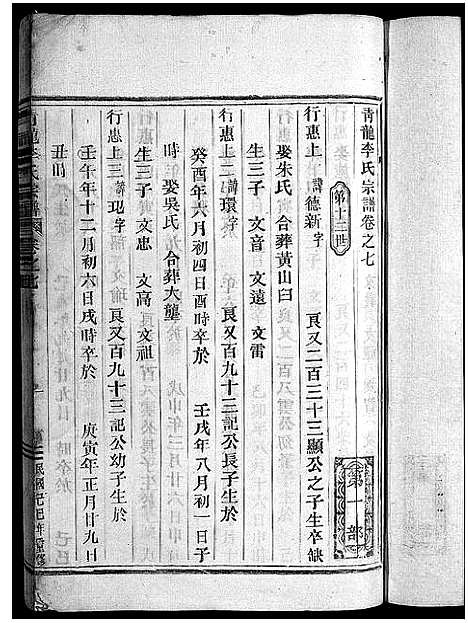 青龍李氏宗譜卷之七
第一部
第十三世
行惠上一諱德新字 良又二百三十三顯公之子生卒缺
娶朱氏 合葬黃山臼
生三子 文音 文遠 文雷
行惠上二諱環字 良又百九十三記公長子生於
癸酉年六月初四日酉時卒於 壬戌年八月初一日子
時 娶吳氏 合葬大壟
生三子 文忠 文高 文祖
行惠上三諱現字 良又百九十三記公幼子生於
壬午年十二月初六日戌時卒於 庚寅年正月廿九日
丑時
民國己巳年重修